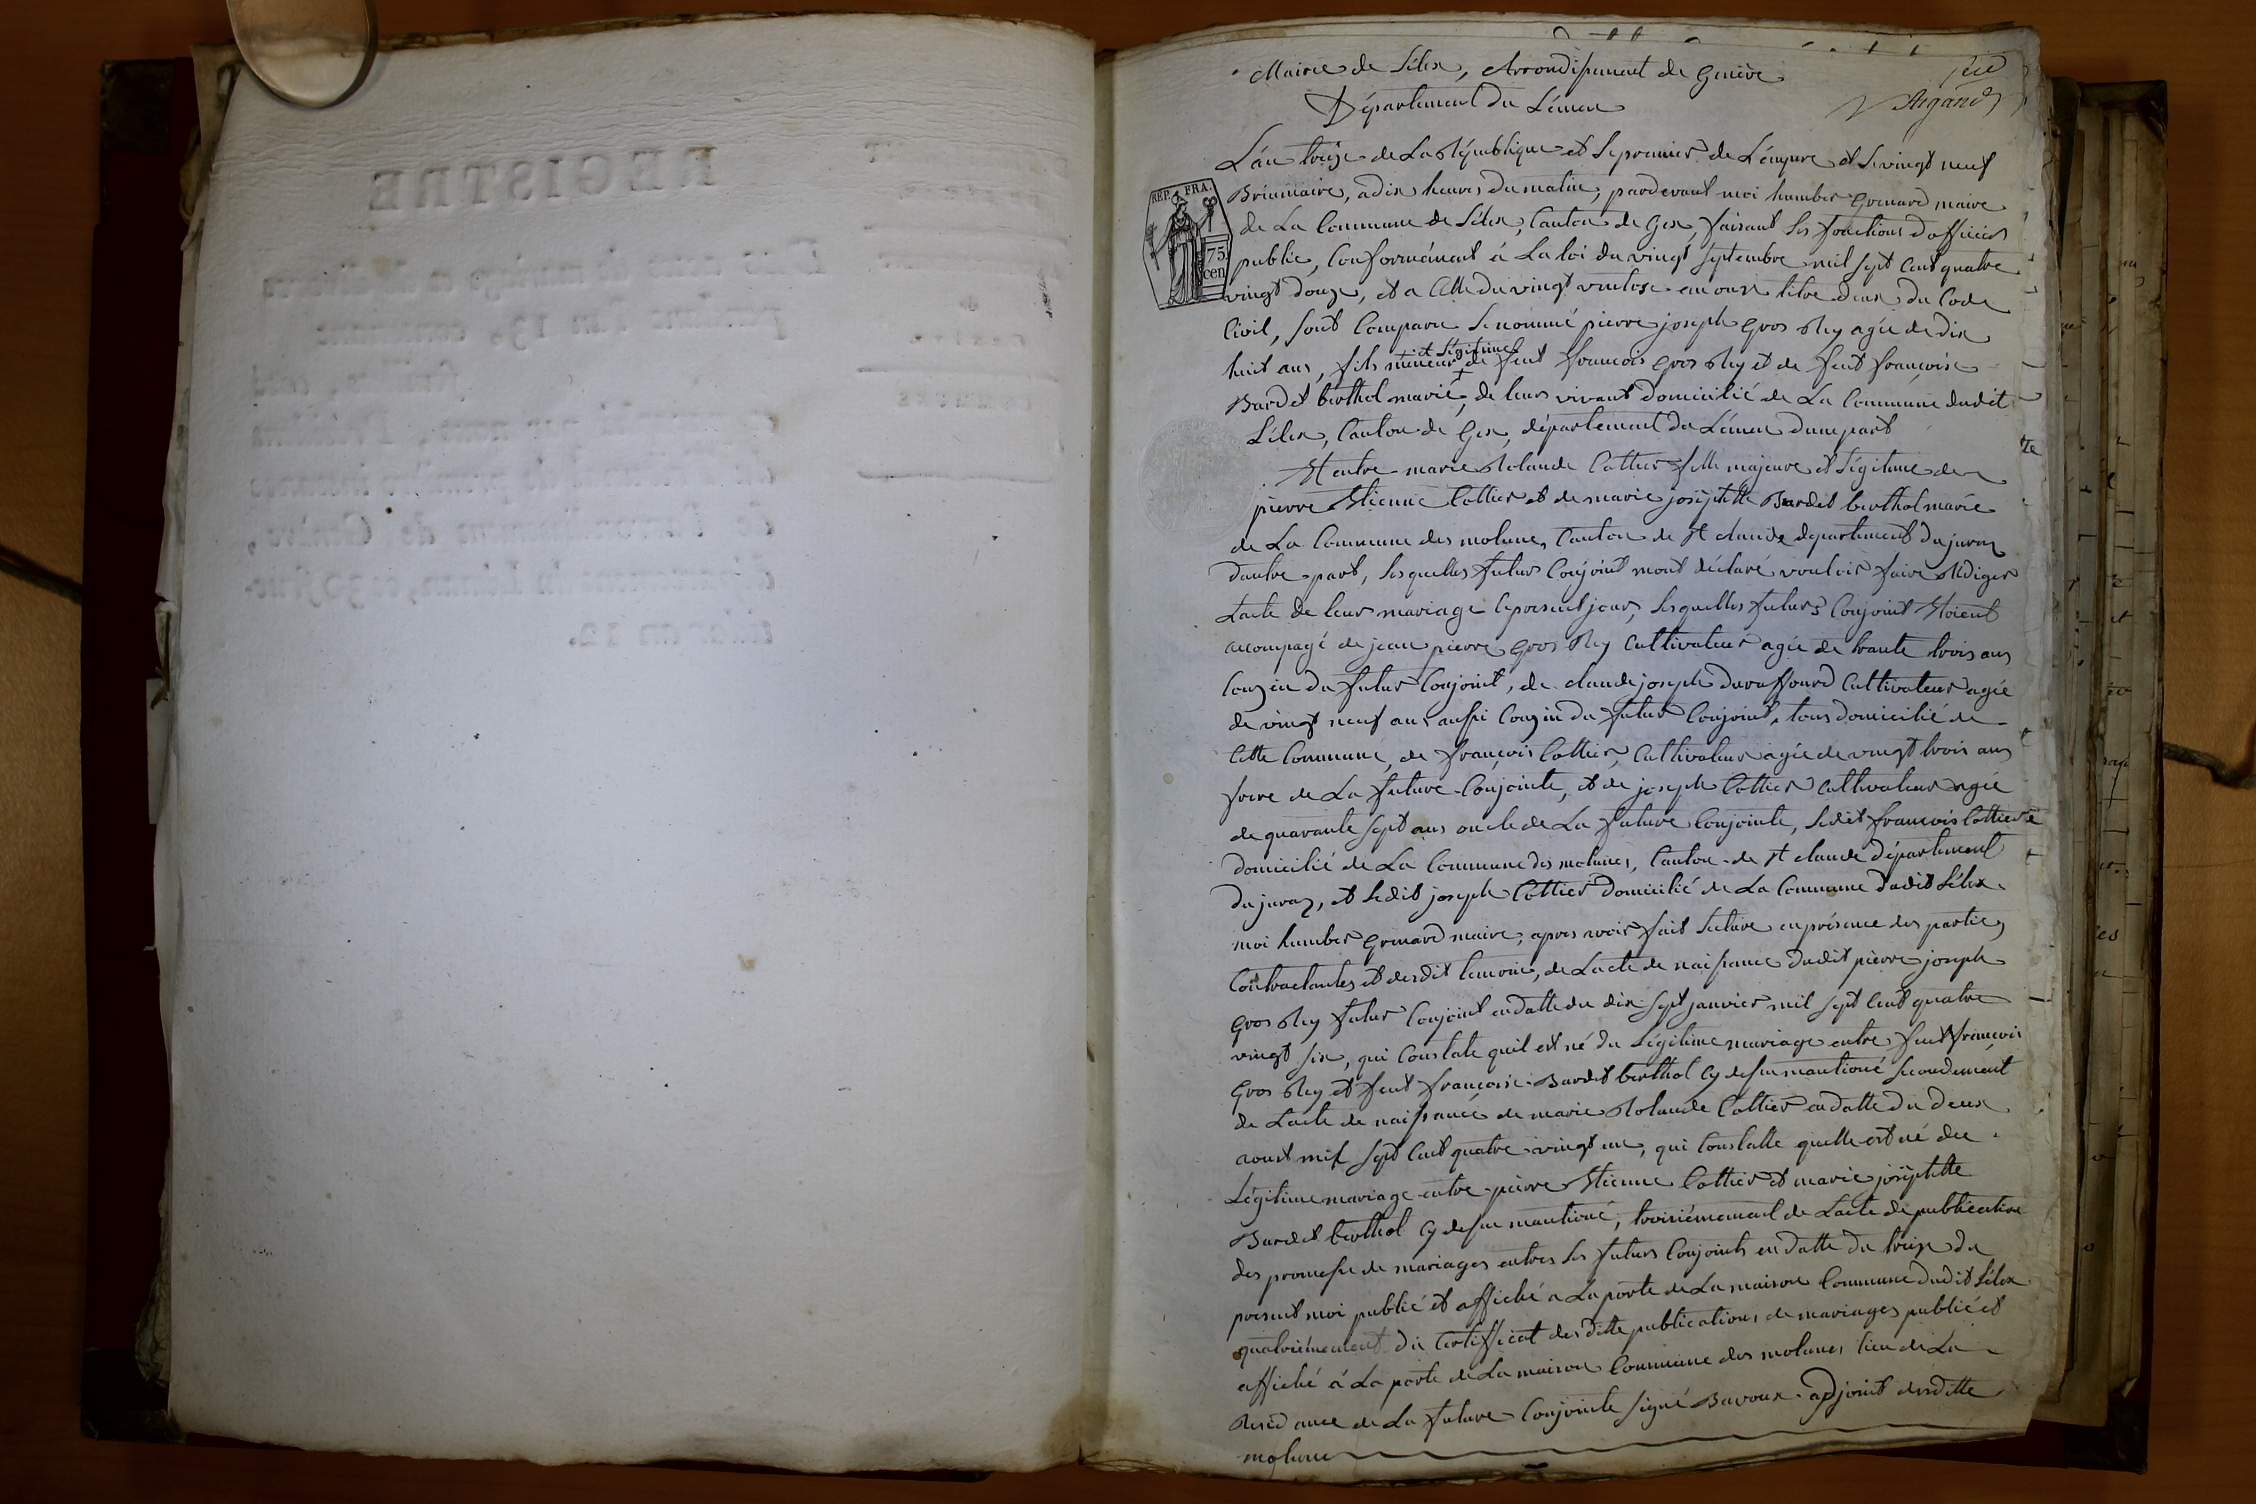 REGISTRE
Mairie de Lélex, Arrondissement de Genève
Département du Léman
Argand
L'an treize de La République et Le premier de L'empire et Le vingt neuf
REP. FRA.
75 cen
Brumaire, a dix heures du matin, pardevant moi humber grenard maire
de La Commune de Lélex, Canton de Gex, faisant Les fonctions d'officier
public, Conformément à La loi du vingt septembre mil sept Cent quatre
vingt douze, et a Celle du vingt ventose an onze titre deux du Code
Civil, sont Comparu Le nommé pierre joseph gros Rey agée de dix
huit ans, fils mineur et Légitime de feut francois gros Rey et de feut francoise
Bardet berthol marié, de leurs vivant domicilié de La Commune dudit
Lélex, Canton de Gex, département du Léman d'une part
Et entre marie Rolande Cottier fille majeure et Légitime de
pierre Etienne Cottier et de marie joséphtte Bardet berthol marié
de La Commune des molunes Canton de St claude département du juraz
d'autre part, Lesquelles futurs Conjoint mont déclaré vouloir faire Rédiger
Lacte de leur mariage Ce present jour, Lesquelles futurs Conjoint Etoient
accompagé de jean pierre gros Rey Cultivateur agée de trante trois ans
Couzin du futur Conjoint, de claude joseph duraffourd Cultivateur agée
de vingt neuf ans aussi Couzin du futur Conjoint, tous domicilié de
Cette Commune, de françois Cottier, Cultivateur agée de vingt trois ans
frere de La future Conjointe, et de joseph Cottier Cultivateur agée
de quarante sept ans oncle de La future Conjointe, Ledit francois Cottier
domicilié de La Commune des molunes, Canton de St claude département
du juraz, et Ledit joseph Cottier domicilié de La Commune dudit Lélex
moi humber grenard maire, apres avoir fait Lecture en présence des parties
Contractantes et desdit temoins, de Lacte de naissance dudit pierre joseph
gros Rey futur Conjoint en datte du dix sept janvier mil sept Cent quatre
vingt six, qui Constate quil est né du Légitime mariage entre feut francois
gros Rey et feut françoise Bardet berthol cy dessus mantioné Secondement
de Lacte de naissance de marie Rolande Cottier en datte du deux
aoust mil sept Cent quatre vingt un, qui Constatte quelle est né du
Légitime mariage entre pierre Etienne Cottier et marie joséphtte
Bardet berthol cy dessu mantioné, troisiémement de Lacte de publication
des promesse de mariages entres Les futurs Conjoints en datte du treize du
present moi publié et affiché a La porte de La maison Commune dudit Lélex
quatriémement du Certifficat desditte publications de mariages publié et
affiché à La porte de La maison Commune des molunes lieu de La
Residance de La future Conjointe signé Bavoux adjoint desditte
molune